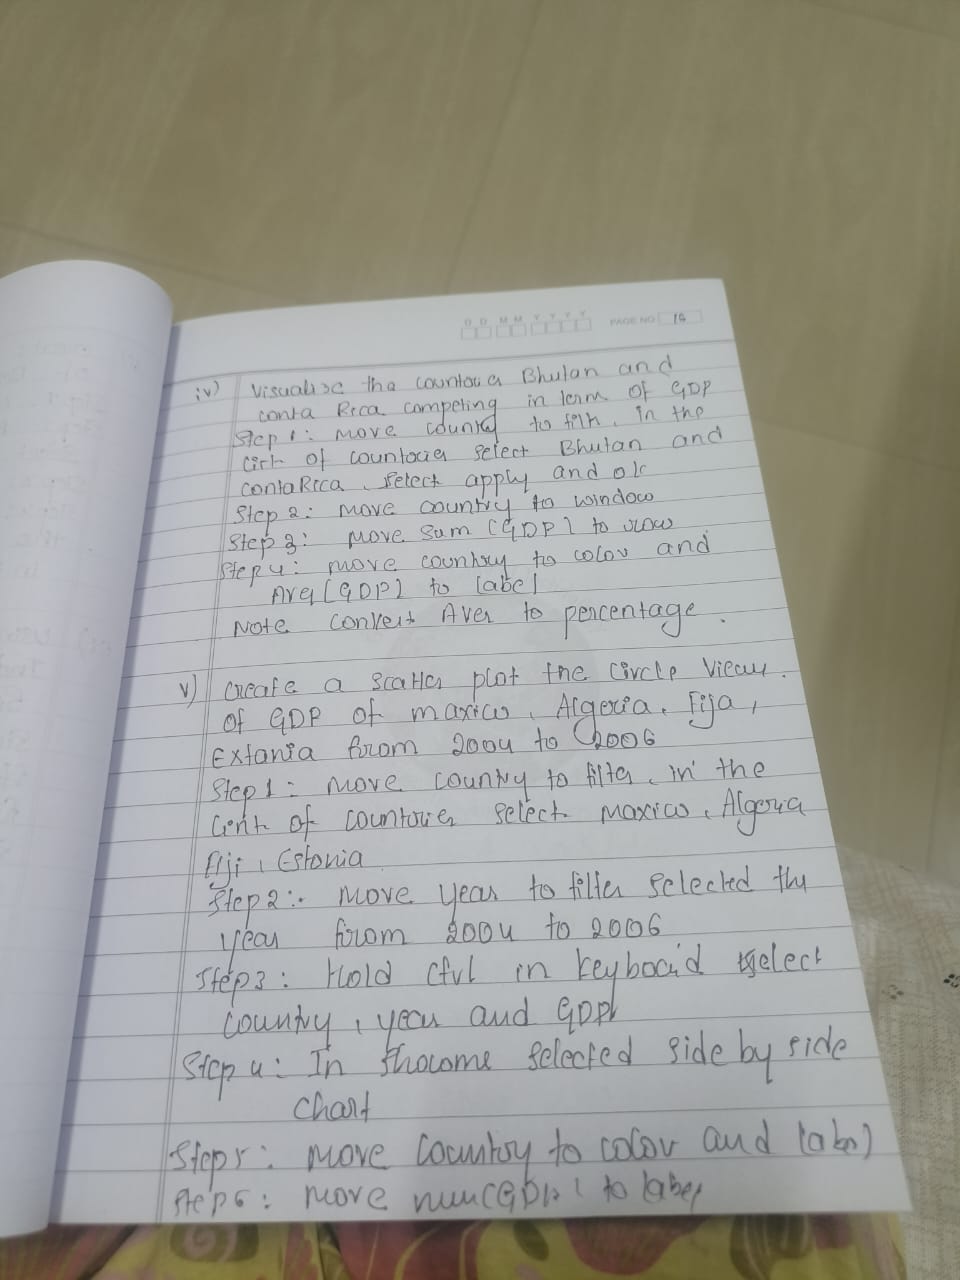 D D M M Y Y Y Y PAGE NO 18
iv) Visualise the countries Bhutan and
conta Rica competing in term of GDP
Step 1: move country to filt. in the
list of countories select Bhutan and
conta Rica. select apply and ok
Step 2: move country to window
Step 3: move sum (GDP) to rows
Step 4: move country to color and
Avg (GDP) to label
Note convert Aver to percentage.
v) Create a scatter plot the circle view.
of GDP of maxico, Algeria, Fija,
Extania from 2004 to 2006
Step 1: move country to filter. in the
list of countories select maxico, Algeria
Fiji, Estonia
Step 2: move year to filter selected the
year from 2004 to 2006
Step 3: Hold ctrl in keyboard select
country, year and GDP
Step 4: In showme selected side by side
chart
Step 5: move country to color and label
Step 6: move (GDP) to label